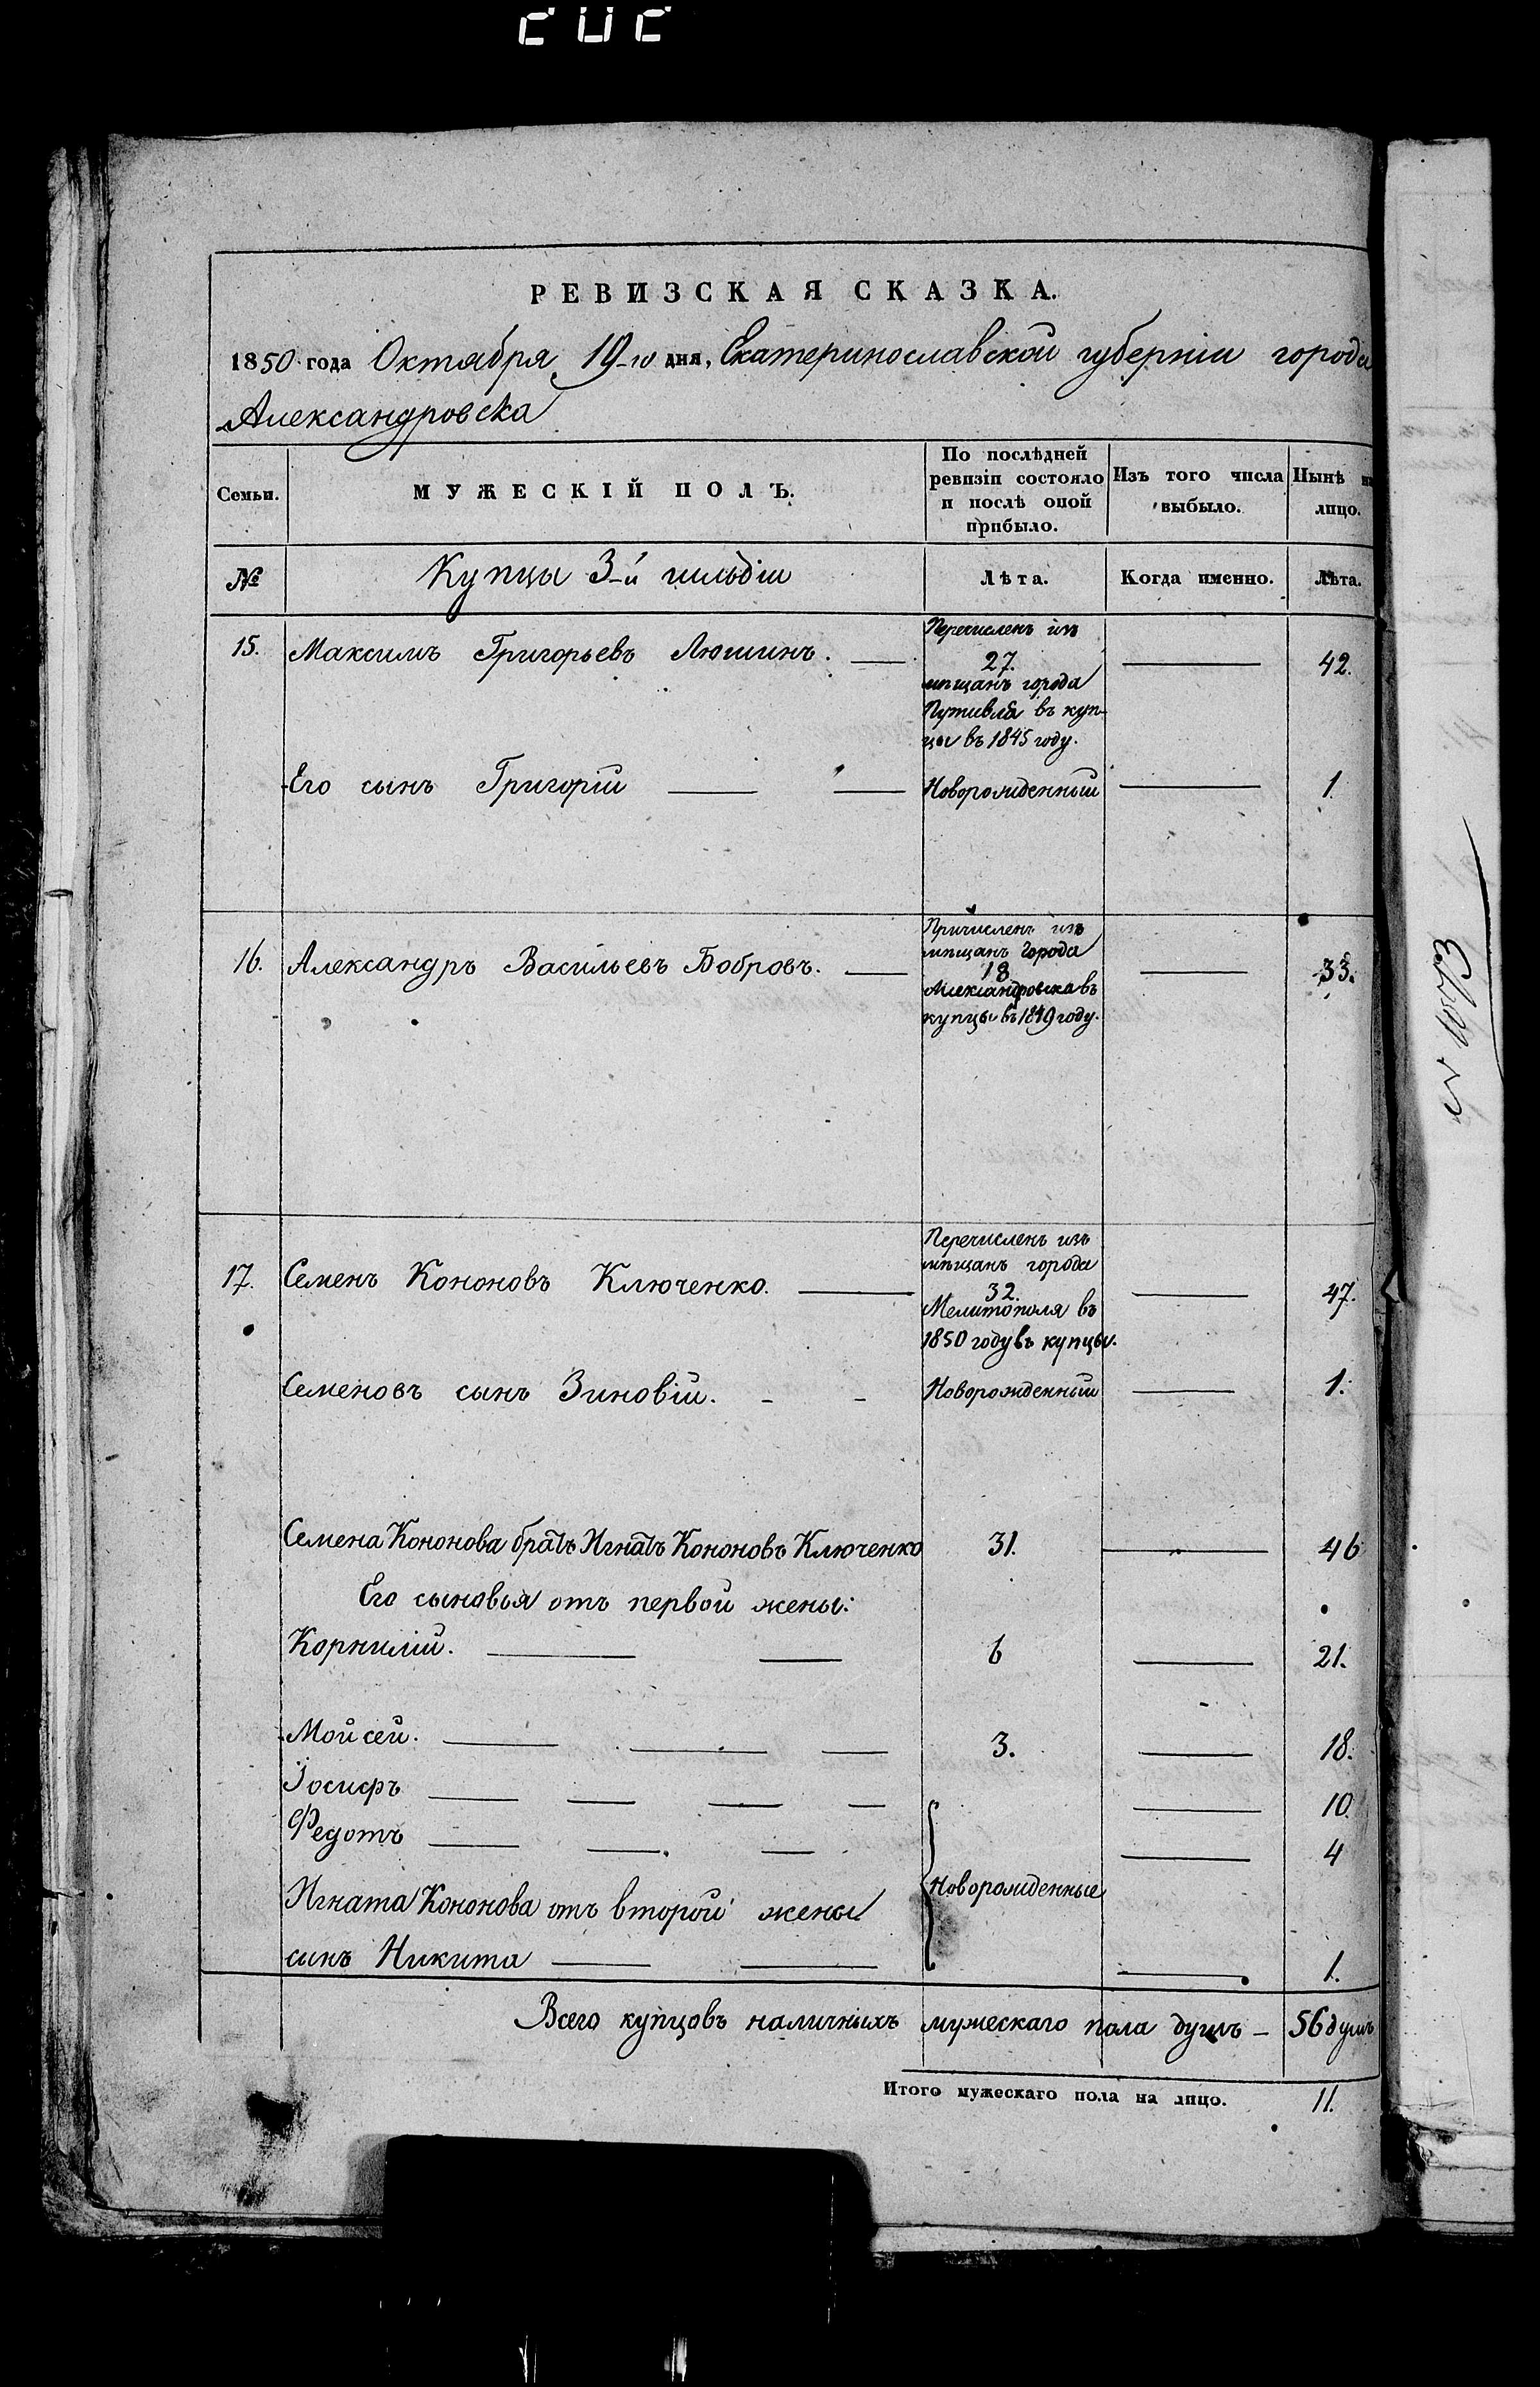 РЕВИЗСКАЯ СКАЗКА.
1850 года Октября 19-го дня, Екатеринославской губерніи города
Александровска
Семьи.
МУЖЕСКІЙ ПОЛЪ.
По послѣдней
ревизіи состояло
и послѣ оной
прибыло.
Изъ того числа
выбыло.
Нынѣ на
лицо.
№
Купцы 3-й гильдіи
Лѣта.
Когда именно.
Лѣта.
15. Максимъ Григорьевъ Люшинъ. 42.
Перечисленъ изъ
27.
мѣщанъ города
Путивля въ куп-
цы въ 1845 году.
Его сынъ Григорій Новорожденный 1.
16. Александръ Васильевъ Бобровъ. 33.
Причисленъ изъ
мѣщанъ города
18
Александровска въ
купцы въ 1849 году.
17. Семенъ Кононовъ Ключенко. 47.
Перечисленъ изъ
мѣщанъ города
32.
Мелитополя въ
1850 году въ купцы.
Семеновъ сынъ Зиновій. Новорожденный 1.
Семена Кононова братъ Игнатъ Кононовъ Ключенко 31. 46
Его сыновья отъ первой жены:
Корнилій. 6 21.
Мойсей. 3. 18.
Іосифъ 10.
Федотъ 4
Новорожденные
Игната Кононова отъ второй жены
сынъ Никита 1.
Всего купцовъ наличныхъ мужескаго пола душъ – 56 душъ
Итого мужескаго пола на лицо. 11.
№ 1073